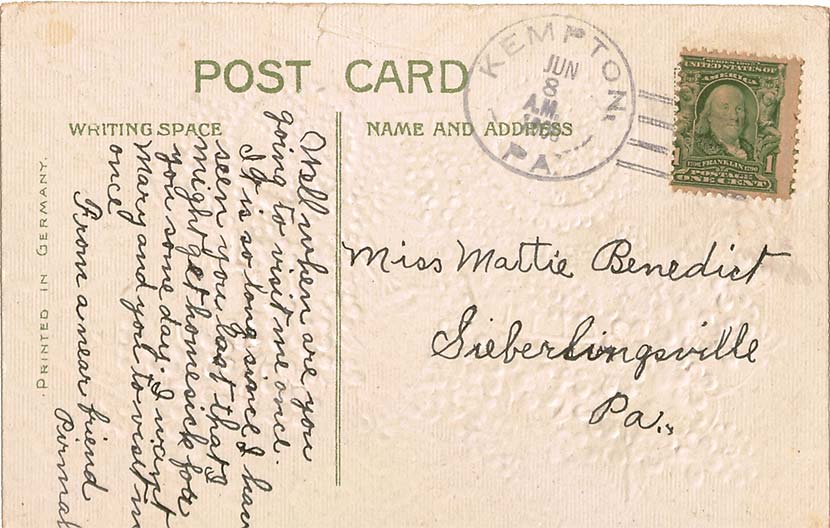 POST CARD
WRITING SPACE
NAME AND ADDRESS
PRINTED IN GERMANY.
KEMPTON,
JUN
8
A.M.
PA.
SERIES 1902
UNITED STATES OF
AMERICA
1 FRANKLIN 1
POSTAGE
ONE CENT
Well when are you
going to visit me once.
It is so long since I hav
seen you last that I
might get homesick for
you some day. I want
Mary and you to visit m
once
From a near friend
Miss Mattie Benedict
Sieberlingsville
Pa.